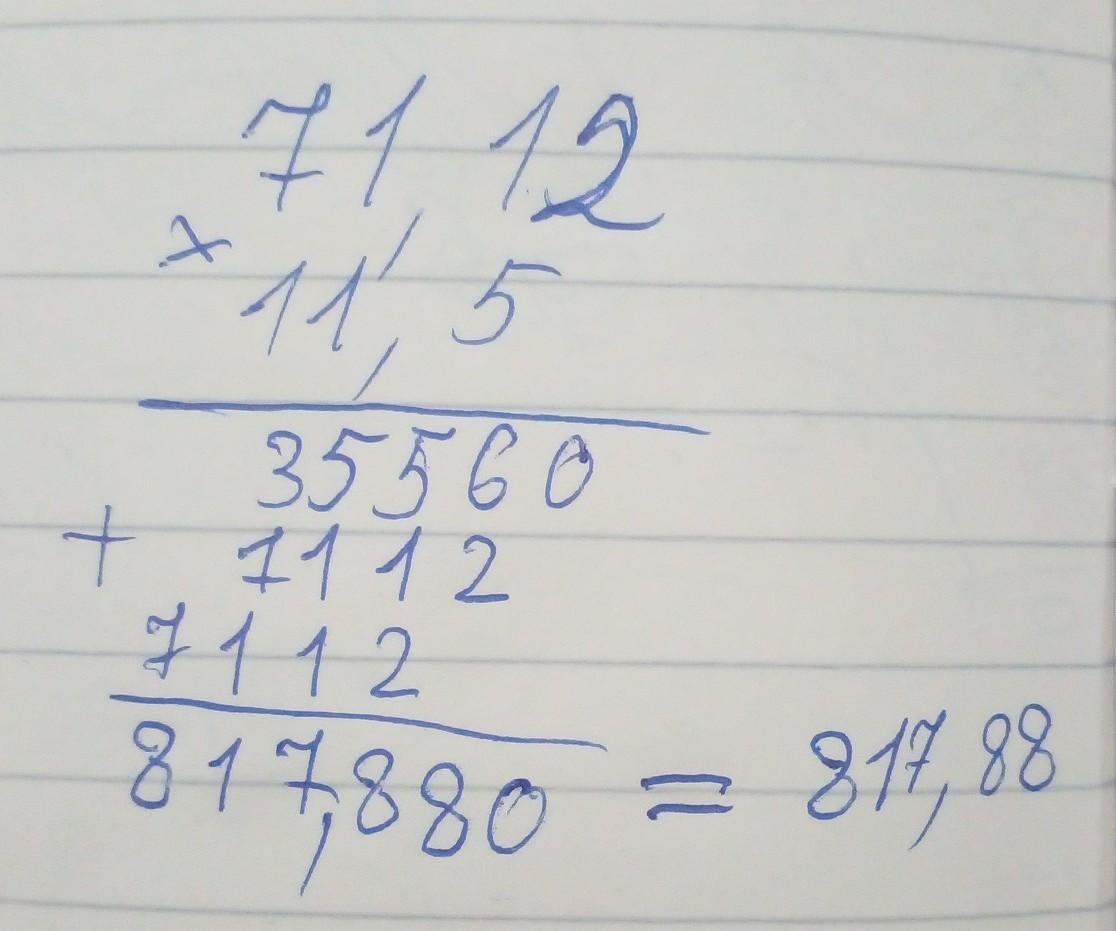 71,12
×
11,5
35560
+ 7112
7112
817,880 = 817,88